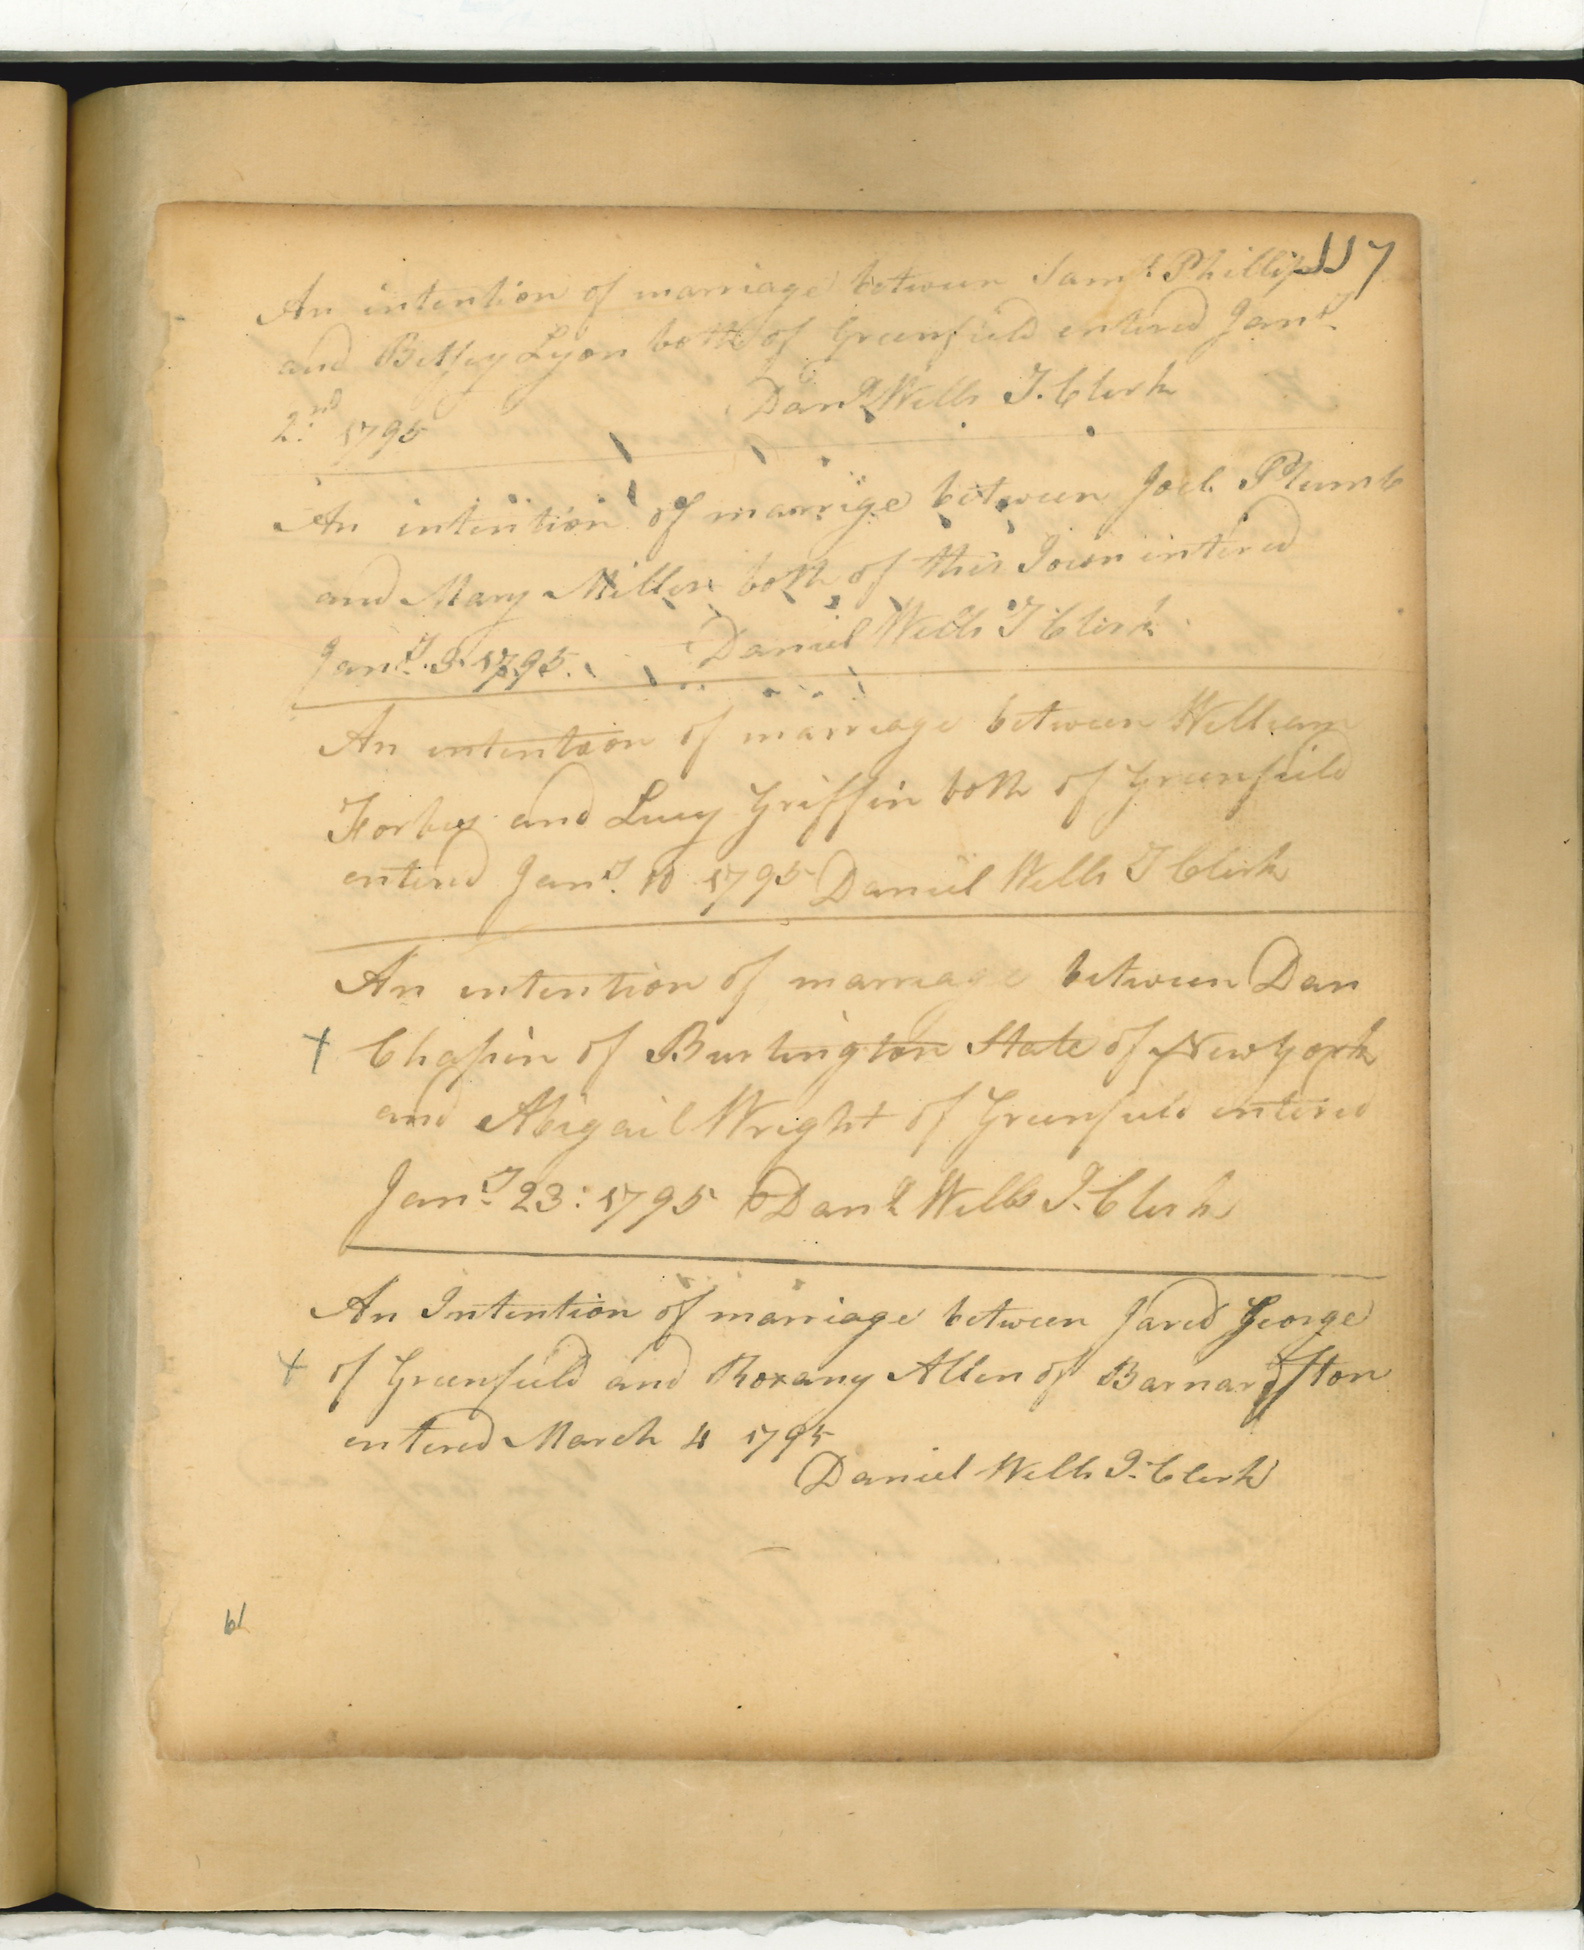 117
An intention of marriage between Sam.l Phillips
and Betsey Lyon both of Greenfield entered Jan.y
2.nd 1795 Dan.l Wells T. Clerk
An intention of marrige between Joel Plumb
and Mary Miller both of this Town entered
Jan.y 3 1795. Daniel Wells T Clerk
An intention of marriage between William
Forbes and Lucy Griffin both of Greenfield
entered Jan.y 10 1795 Daniel Wells T Clerk
An intention of marriage between Dan
+ Chapin of Burlington State of New york
and Abigail Wright of Greenfield entered
Jan.y 23: 1795 Dan.l Wells T. Clerk
An Intention of marriage between Jared George
+ of Greenfield and Roxany Allen of Barnardston
entered March 4 1795
Daniel Wells T. Clerk